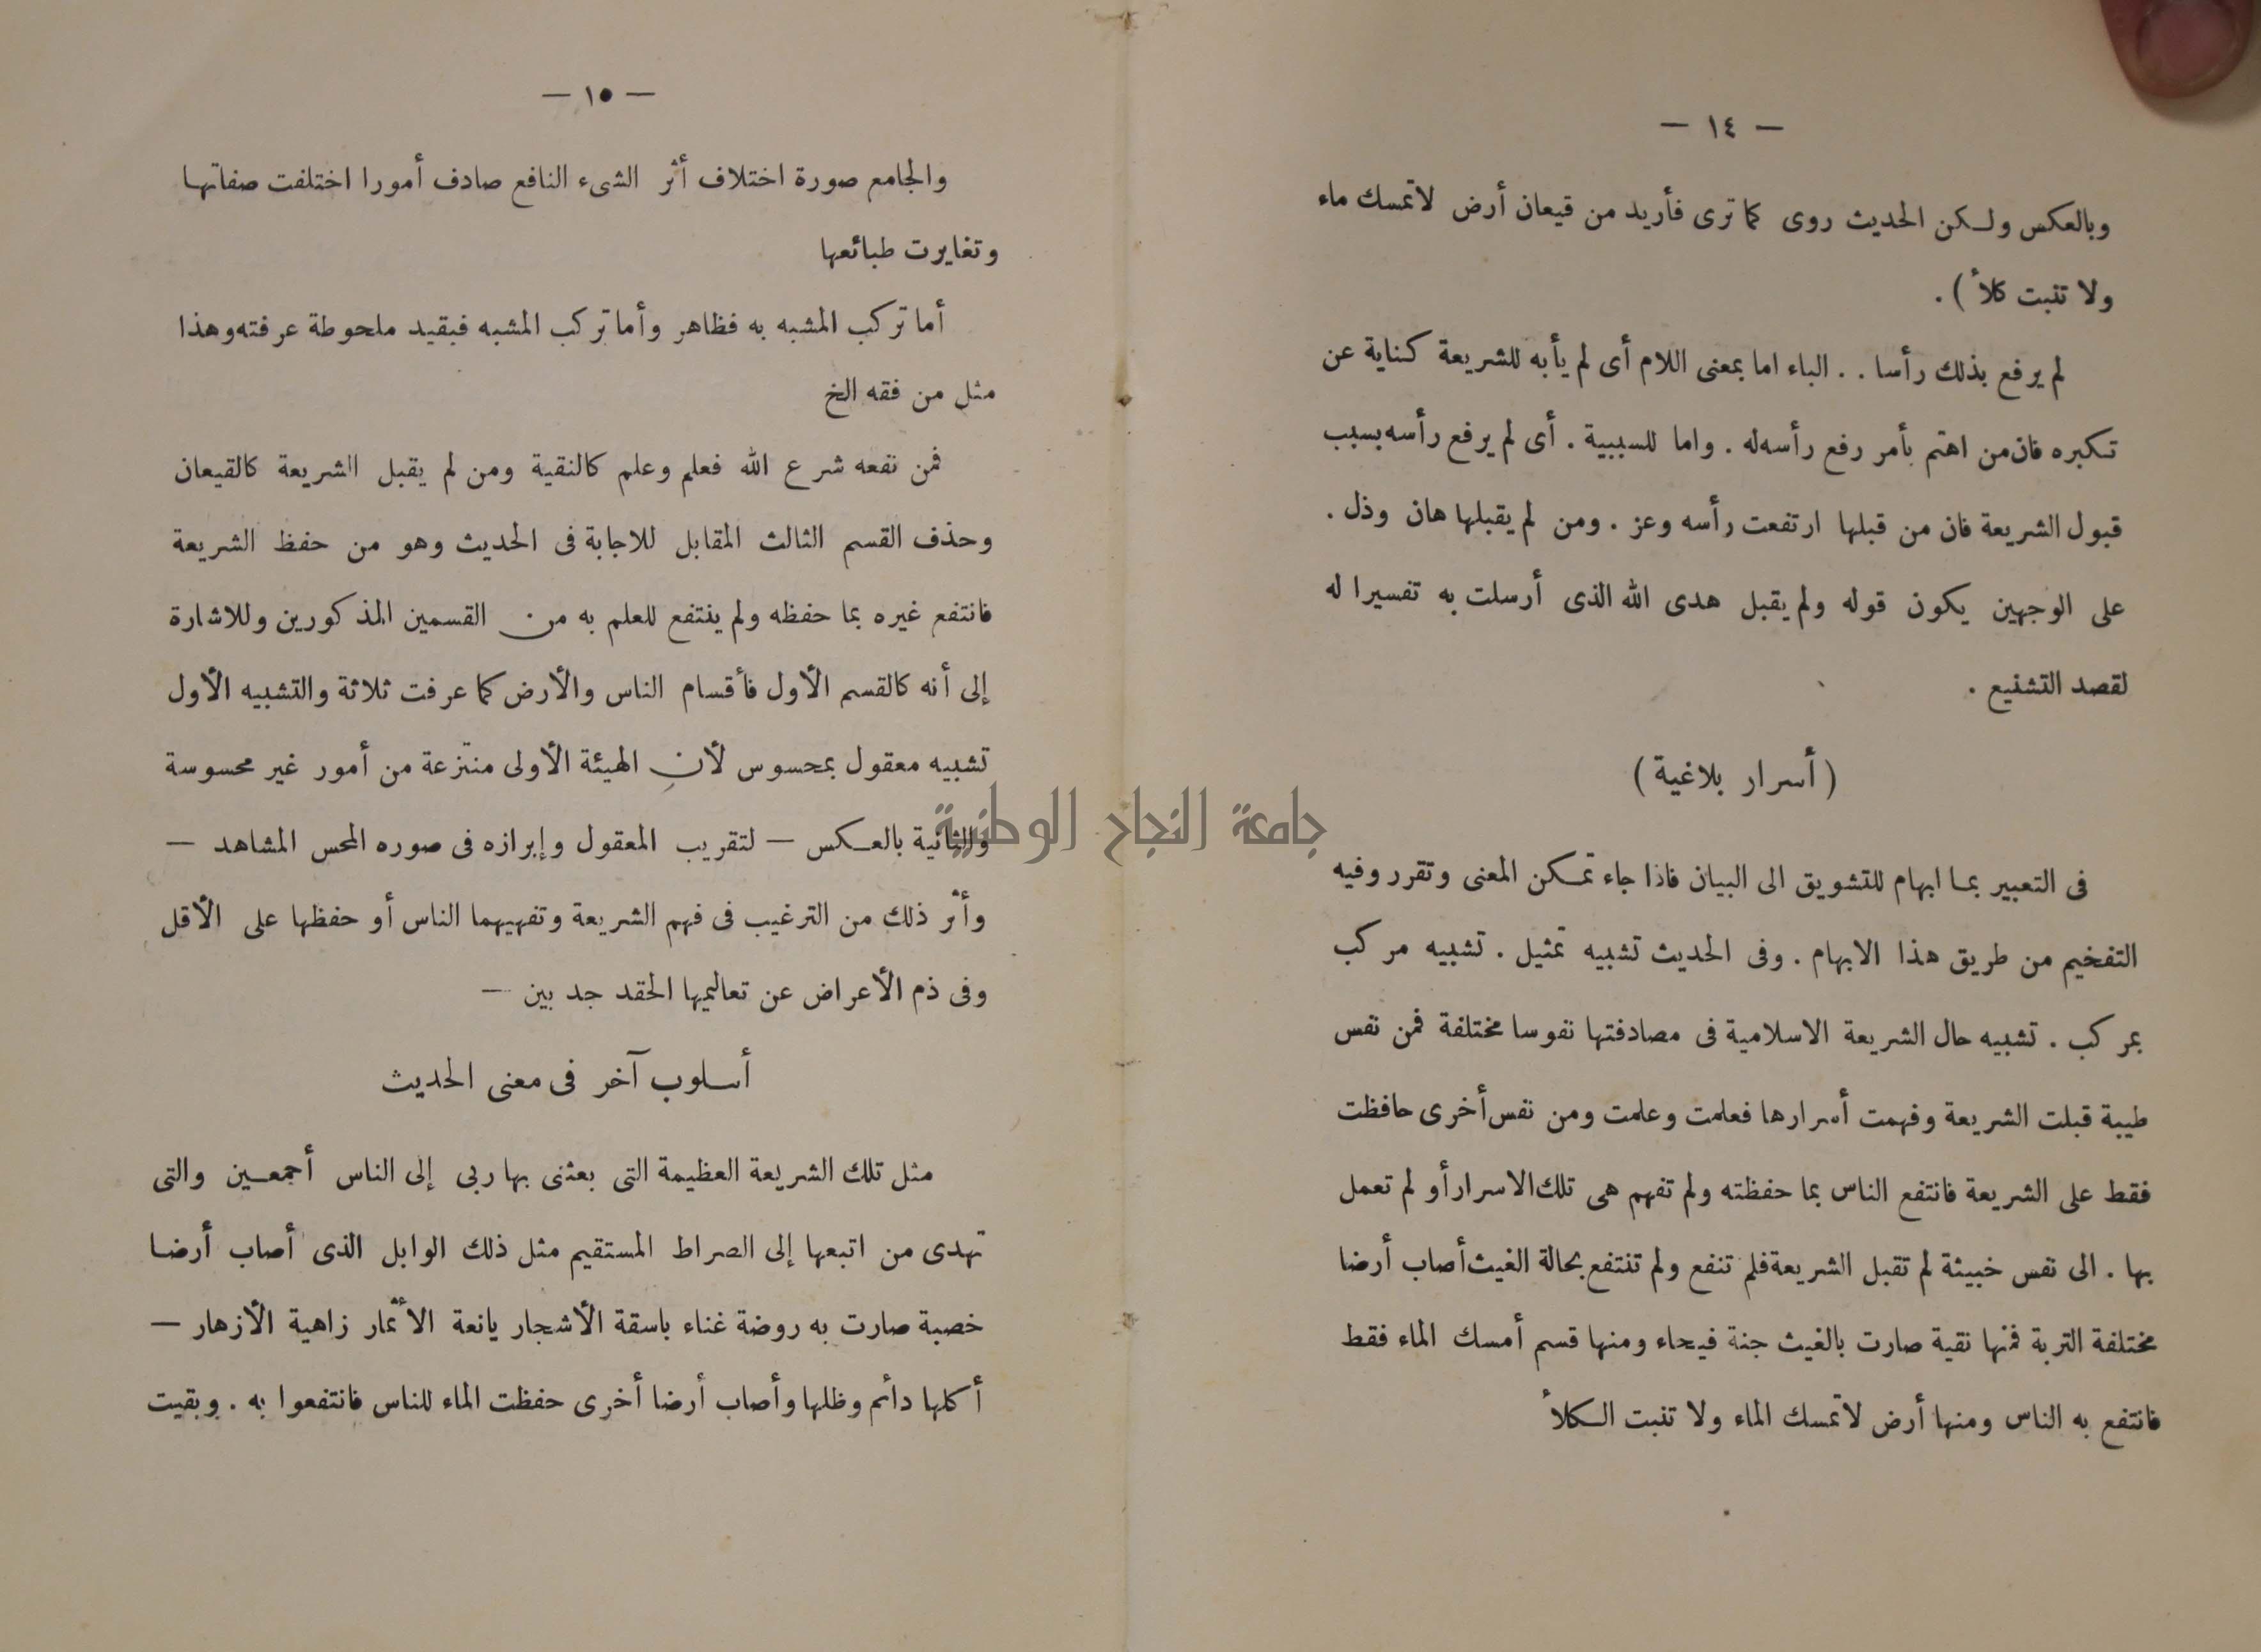 — ١٤ —
وبالعكس ولكن الحديث روى كما ترى فأريد من قيعان أرض لاتمسك ماء
ولا تنبت كلأ ) .
لم يرفع بذلك رأسا . . الباء اما بمعنى اللام أى لم يأبه للشريعة كناية عن
تكبره فان من اهتم بأمر رفع رأسه له . واما للسببية . أى لم يرفع رأسه بسبب
قبول الشريعة فان من قبلها ارتفعت رأسه وعز . ومن لم يقبلها هان وذل .
على الوجهين يكون قوله ولم يقبل هدى الله الذى أرسلت به تفسيرا له
لقصد التشنيع .
( أسرار بلاغية )
فى التعبير بما ابهام للتشويق الى البيان فاذا جاء تمكن المعنى وتقرر وفيه
التفخيم من طريق هذا الابهام . وفى الحديث تشبيه تمثيل . تشبيه مركب
بمركب . تشبيه حال الشريعة الاسلامية فى مصادفتها نفوسا مختلفة فمن نفس
طيبة قبلت الشريعة وفهمت أسرارها فعلمت وعلمت ومن نفس أخرى حافظت
فقط على الشريعة فانتفع الناس بما حفظته ولم تفهم هى تلك الاسرار أو لم تعمل
بها . الى نفس خبيثة لم تقبل الشريعة فلم تنفع ولم تنتفع بحالة الغيث أصاب أرضا
مختلفة التربة فمنها نقية صارت بالغيث جنة فيحاء ومنها قسم أمسك الماء فقط
فانتفع به الناس ومنها أرض لاتمسك الماء ولا تنبت الكلأ
— ١٥ —
والجامع صورة اختلاف أثر الشىء النافع صادف أمورا اختلفت صفاتها
وتغايرت طبائعها
أما تركب المشبه به فظاهر وأما تركب المشبه فبقيد ملحوظة عرفته وهذا
مثل من فقه الخ
فمن نفعه شرع الله فعلم وعلم كالنقية ومن لم يقبل الشريعة كالقيعان
وحذف القسم الثالث المقابل للاجابة فى الحديث وهو من حفظ الشريعة
فانتفع غيره بما حفظه ولم ينتفع للعلم به من القسمين المذكورين وللاشارة
إلى أنه كالقسم الأول فأقسام الناس والأرض كما عرفت ثلاثة والتشبيه الأول
تشبيه معقول بمحسوس لأن الهيئة الأولى منتزعة من أمور غير محسوسة
والثانية بالعكس — لتقريب المعقول وإبرازه فى صوره المحس المشاهد —
وأثر ذلك من الترغيب فى فهم الشريعة وتفهيهما الناس أو حفظها على الأقل
وفى ذم الأعراض عن تعاليمها الحقد جد بين —
أسلوب آخر فى معنى الحديث
مثل تلك الشريعة العظيمة التى بعثنى بها ربى إلى الناس أجمعين والتى
تهدى من اتبعها إلى الصراط المستقيم مثل ذلك الوابل الذى أصاب أرضا
خصبة صارت به روضة غناء باسقة الأشجار يانعة الأثمار زاهية الأزهار —
أكلها دائم وظلها وأصاب أرضا أخرى حفظت الماء للناس فانتفعوا به . وبقيت
جامعة النجاح الوطنية